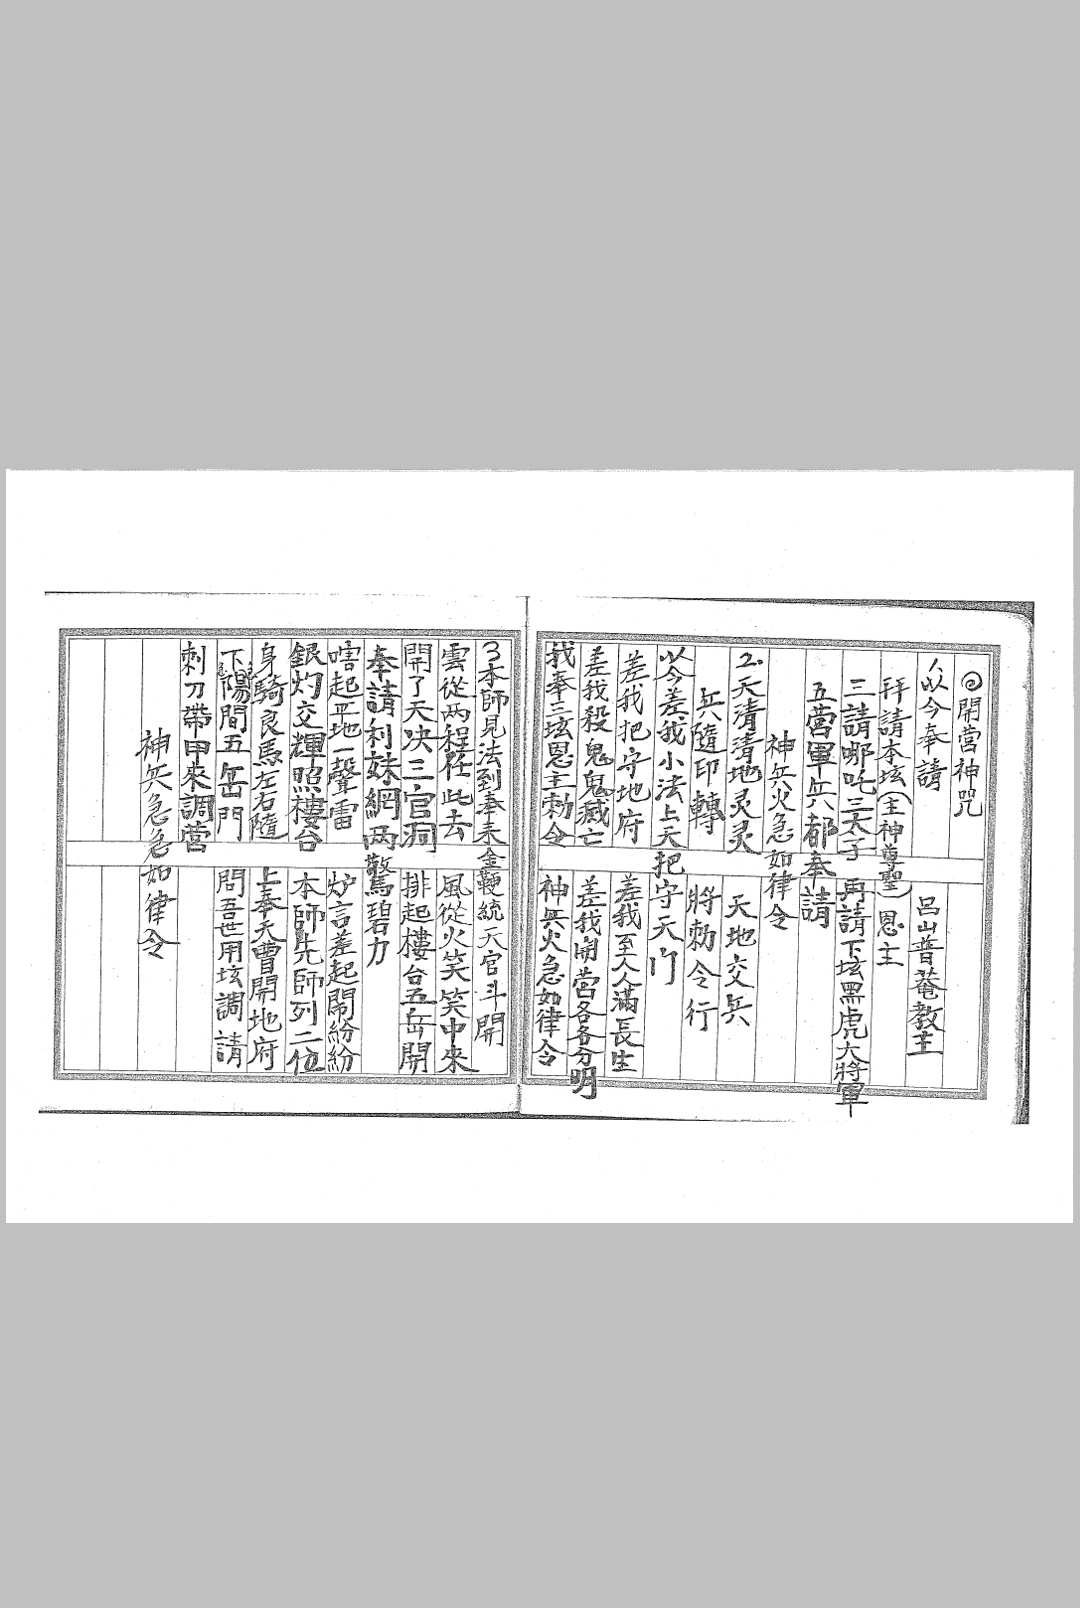 ◎開營神咒
1.以今奉請 呂山普菴教主
拜請本垓(主神尊聖)恩主
三請哪吒三太子 再請下垓黑虎大將軍
五營軍兵都奉請
神兵火急如律令
2.天清清地灵灵 天地交兵
兵隨印轉 將勅令行
以今差我小法上天把守天门
差我把守地府 差我至人人滿長生
差我殺鬼鬼滅亡 差我開營各各分明
我奉三垓恩主勅令 神兵火急如律令
3本師見法到奉来金鞭統天官斗開
雲從两程任此去 風從火笑笑中來
開了天决三官洞 排起樓台五岳開
奉請利妹網两驚碧力
嗐起平地一聲雷 炉言差起鬧紛紛
銀灼交輝照樓台 本師先師列二位
身騎良馬左右隨 上奉天曹開地府
下陽間五岳門 問吾世用垓調請
刺刀帶甲來調營
神兵急急如律令